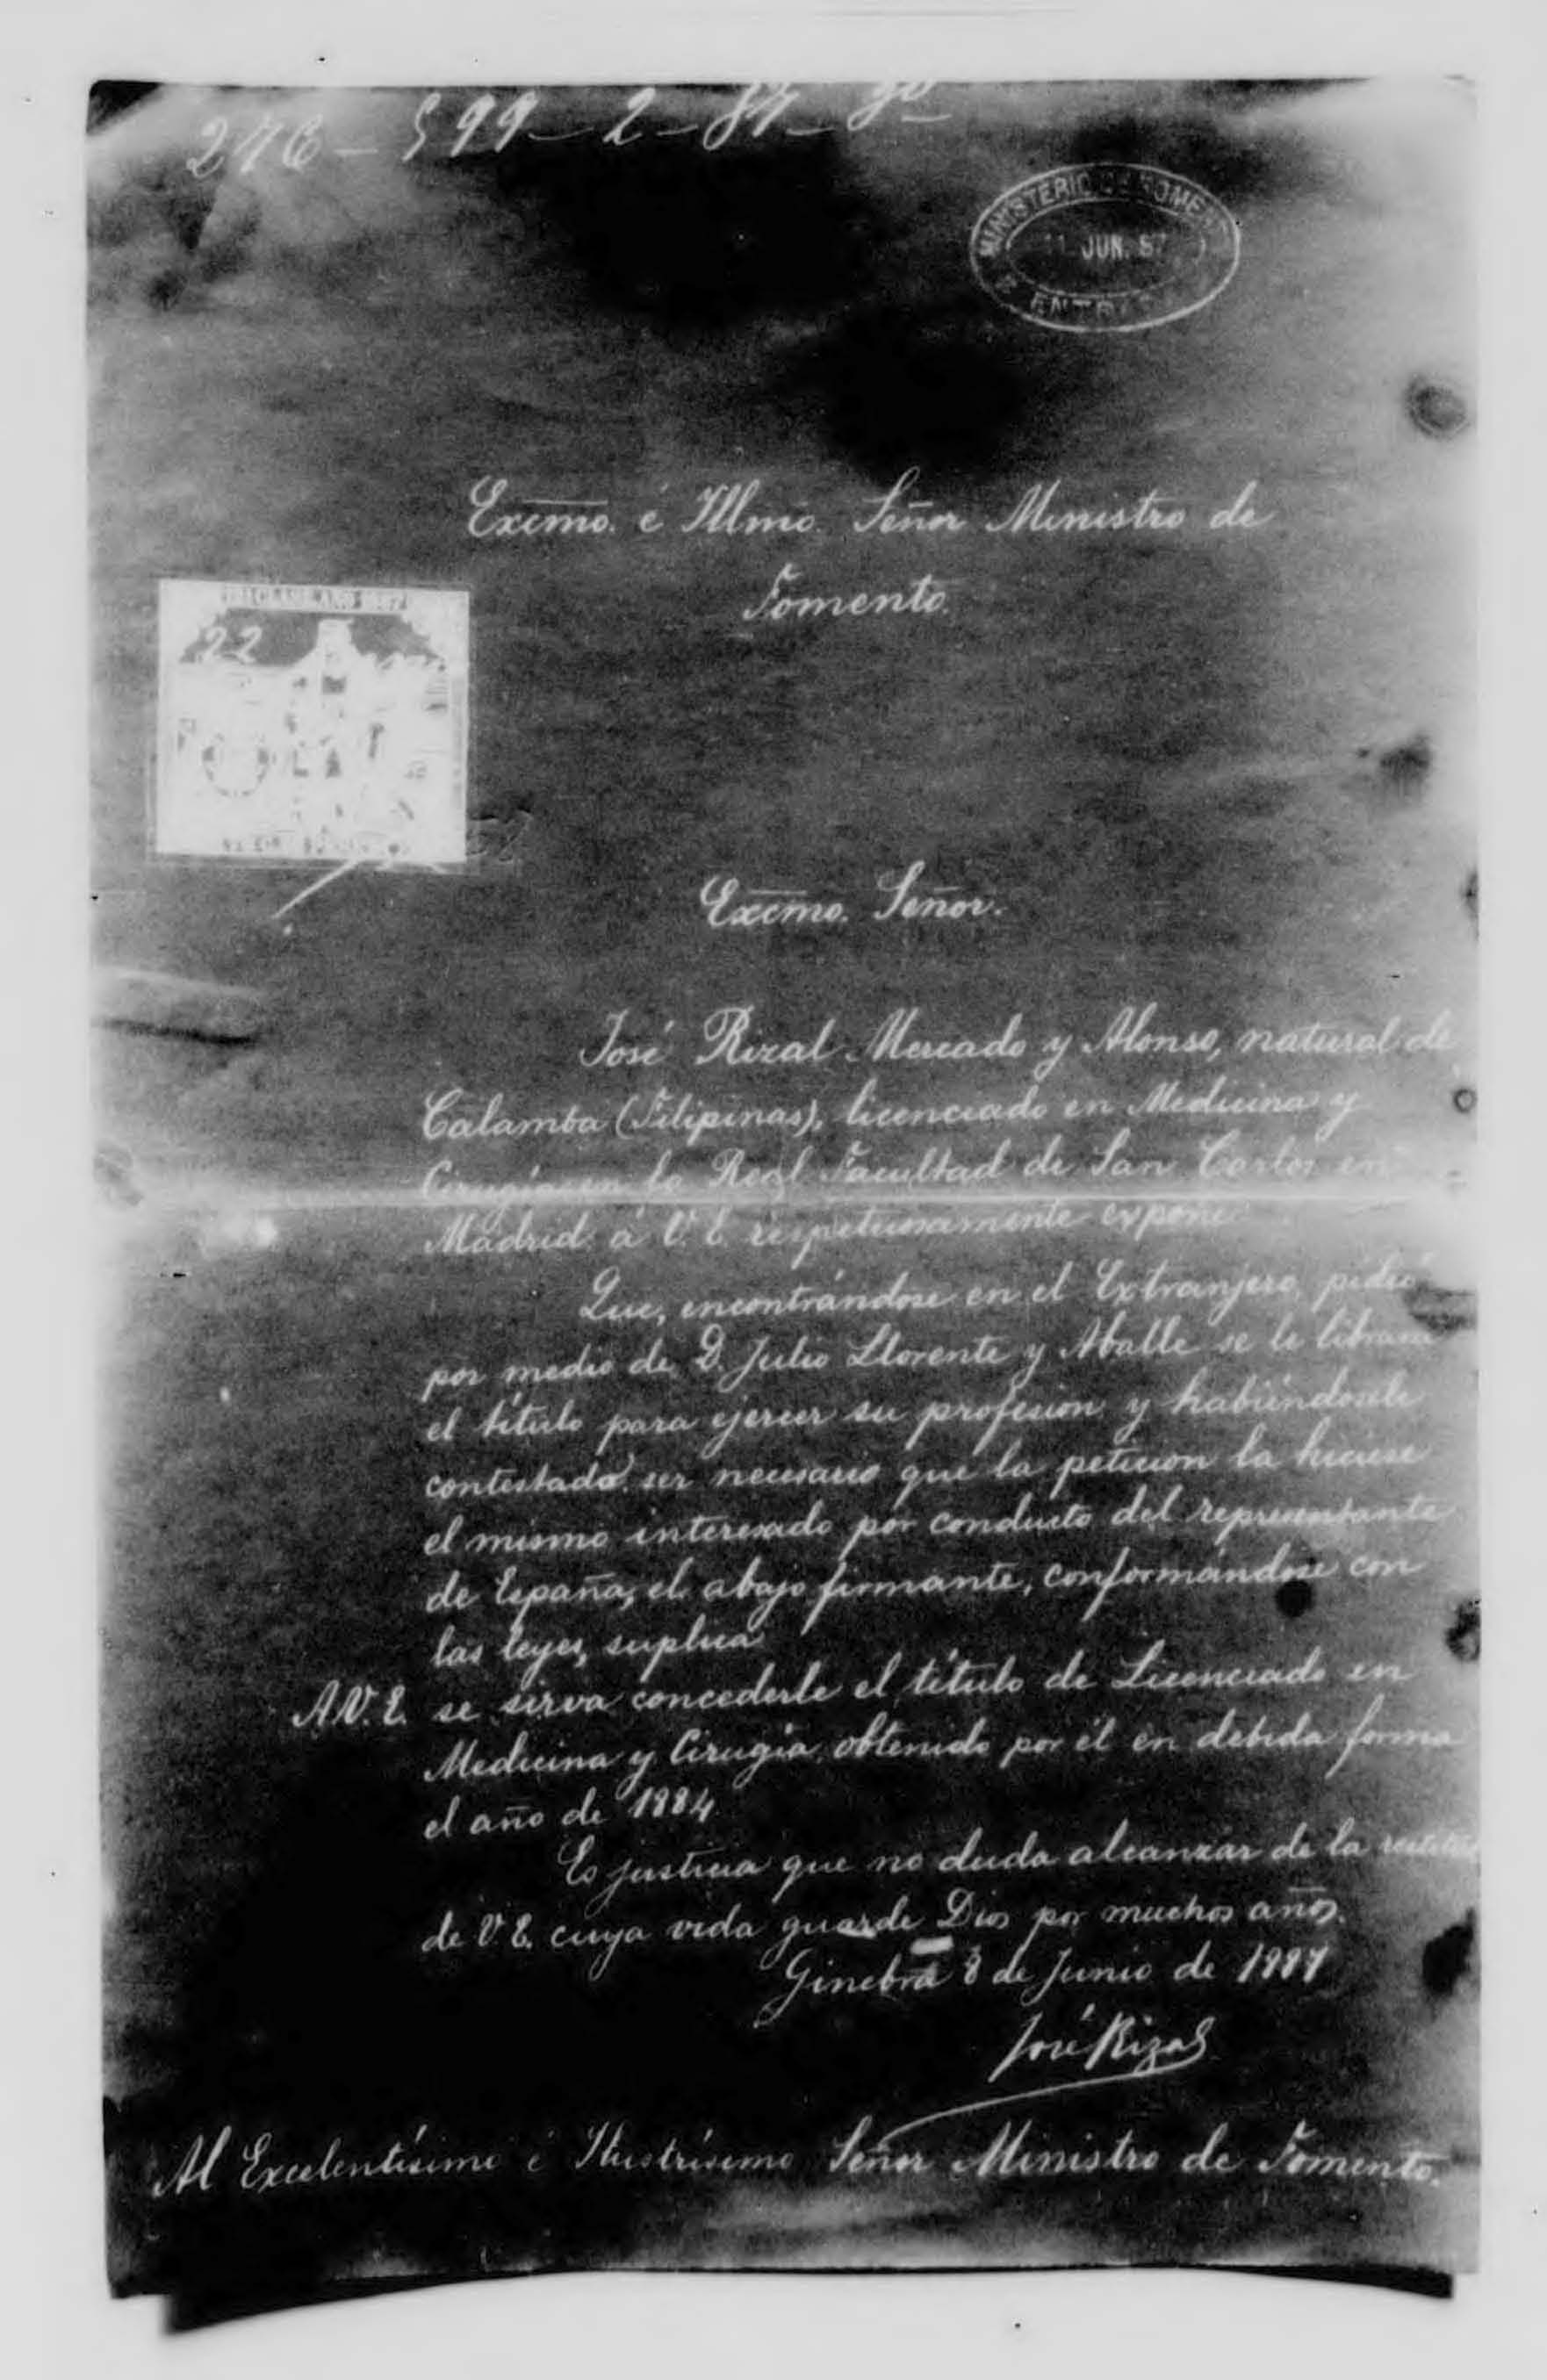 276 - 599 - 2 - 87 - 90
MINISTERIO DE FOMENTO
11 JUN. 87
ENTRADA
Excmo. é Illmo. Señor Ministro de
Fomento.
CLASE AÑO 1887
22
Excmo. Señor.
José Rizal Mercado y Alonso, natural de
Calamba (Filipinas), licenciado en Medicina y
Cirugía en la Real Facultad de San Carlos en
Madrid á V. E. respetuosamente expone
Que, encontrándose en el Extranjero, pidió
por medio de D. Julio Llorente y Aballe se le librase
el título para ejercer su profesion y habiéndosele
contestado ser necesario que la peticion la hiciese
el mismo interesado por conducto del representante
de España, el abajo firmante, conformándose con
las leyes, suplica
A V. E. se sirva concederle el título de Licenciado en
Medicina y Cirugía, obtenido por él en debida forma
el año de 1884
Es justicia que no duda alcanzar de la rectitud
de V. E. cuya vida guarde Dios por muchos años.
Ginebra 8 de Junio de 1887
José Rizal
Al Excelentísimo é Ilustrísimo Señor Ministro de Fomento.